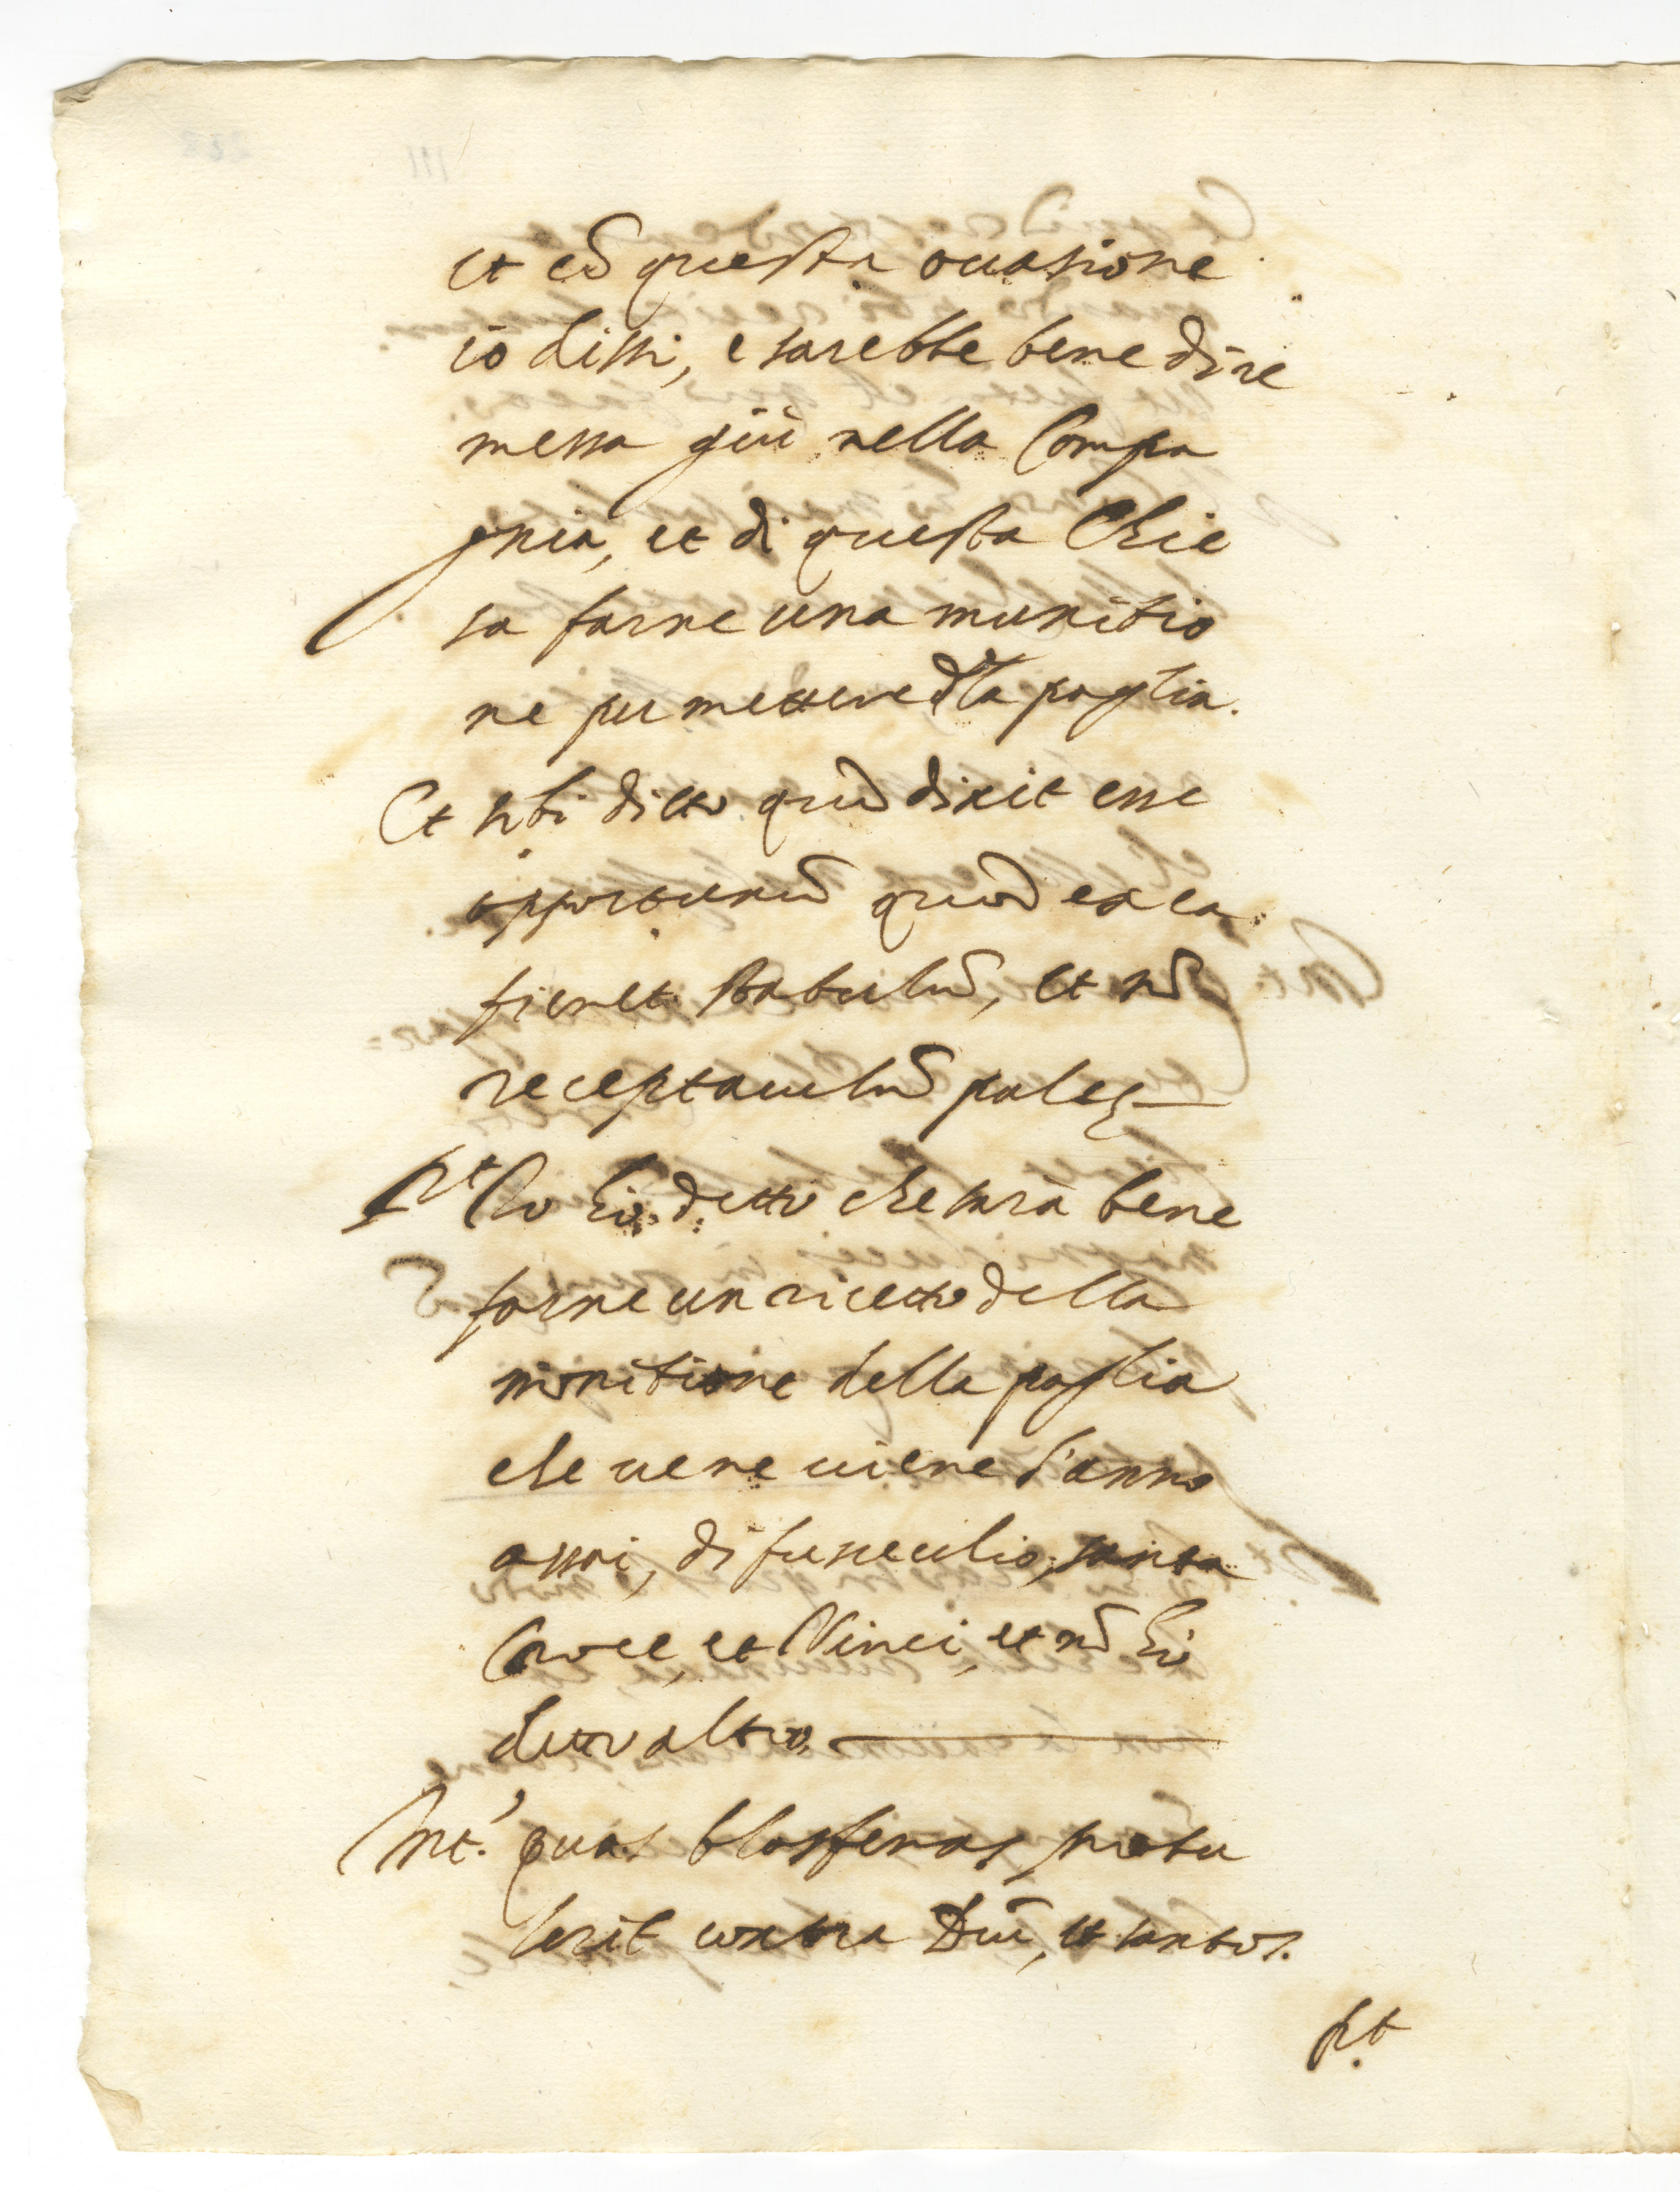 et cō questa occasione
io dissi, e sarebbe bene dire
messa giù nella Compa
gnia, et di questa Chie
sa farne una munitio
ne per mettere dlla paglia.
Et sibi dicto quod dixit esse
opportunū quod ex ea
fieret stabulū, et nō
receptaculū paleę
Rt Io hò detto che sarà bene
farne un ricetto della
monitione della paglia
che vene viene d'anno
assai, di fucecchio, santa
Croce, et Vinci, et nō hò
detto altro.
Int. quas blasfemas protu
lerit contra Dūm, et santos.
Rt.